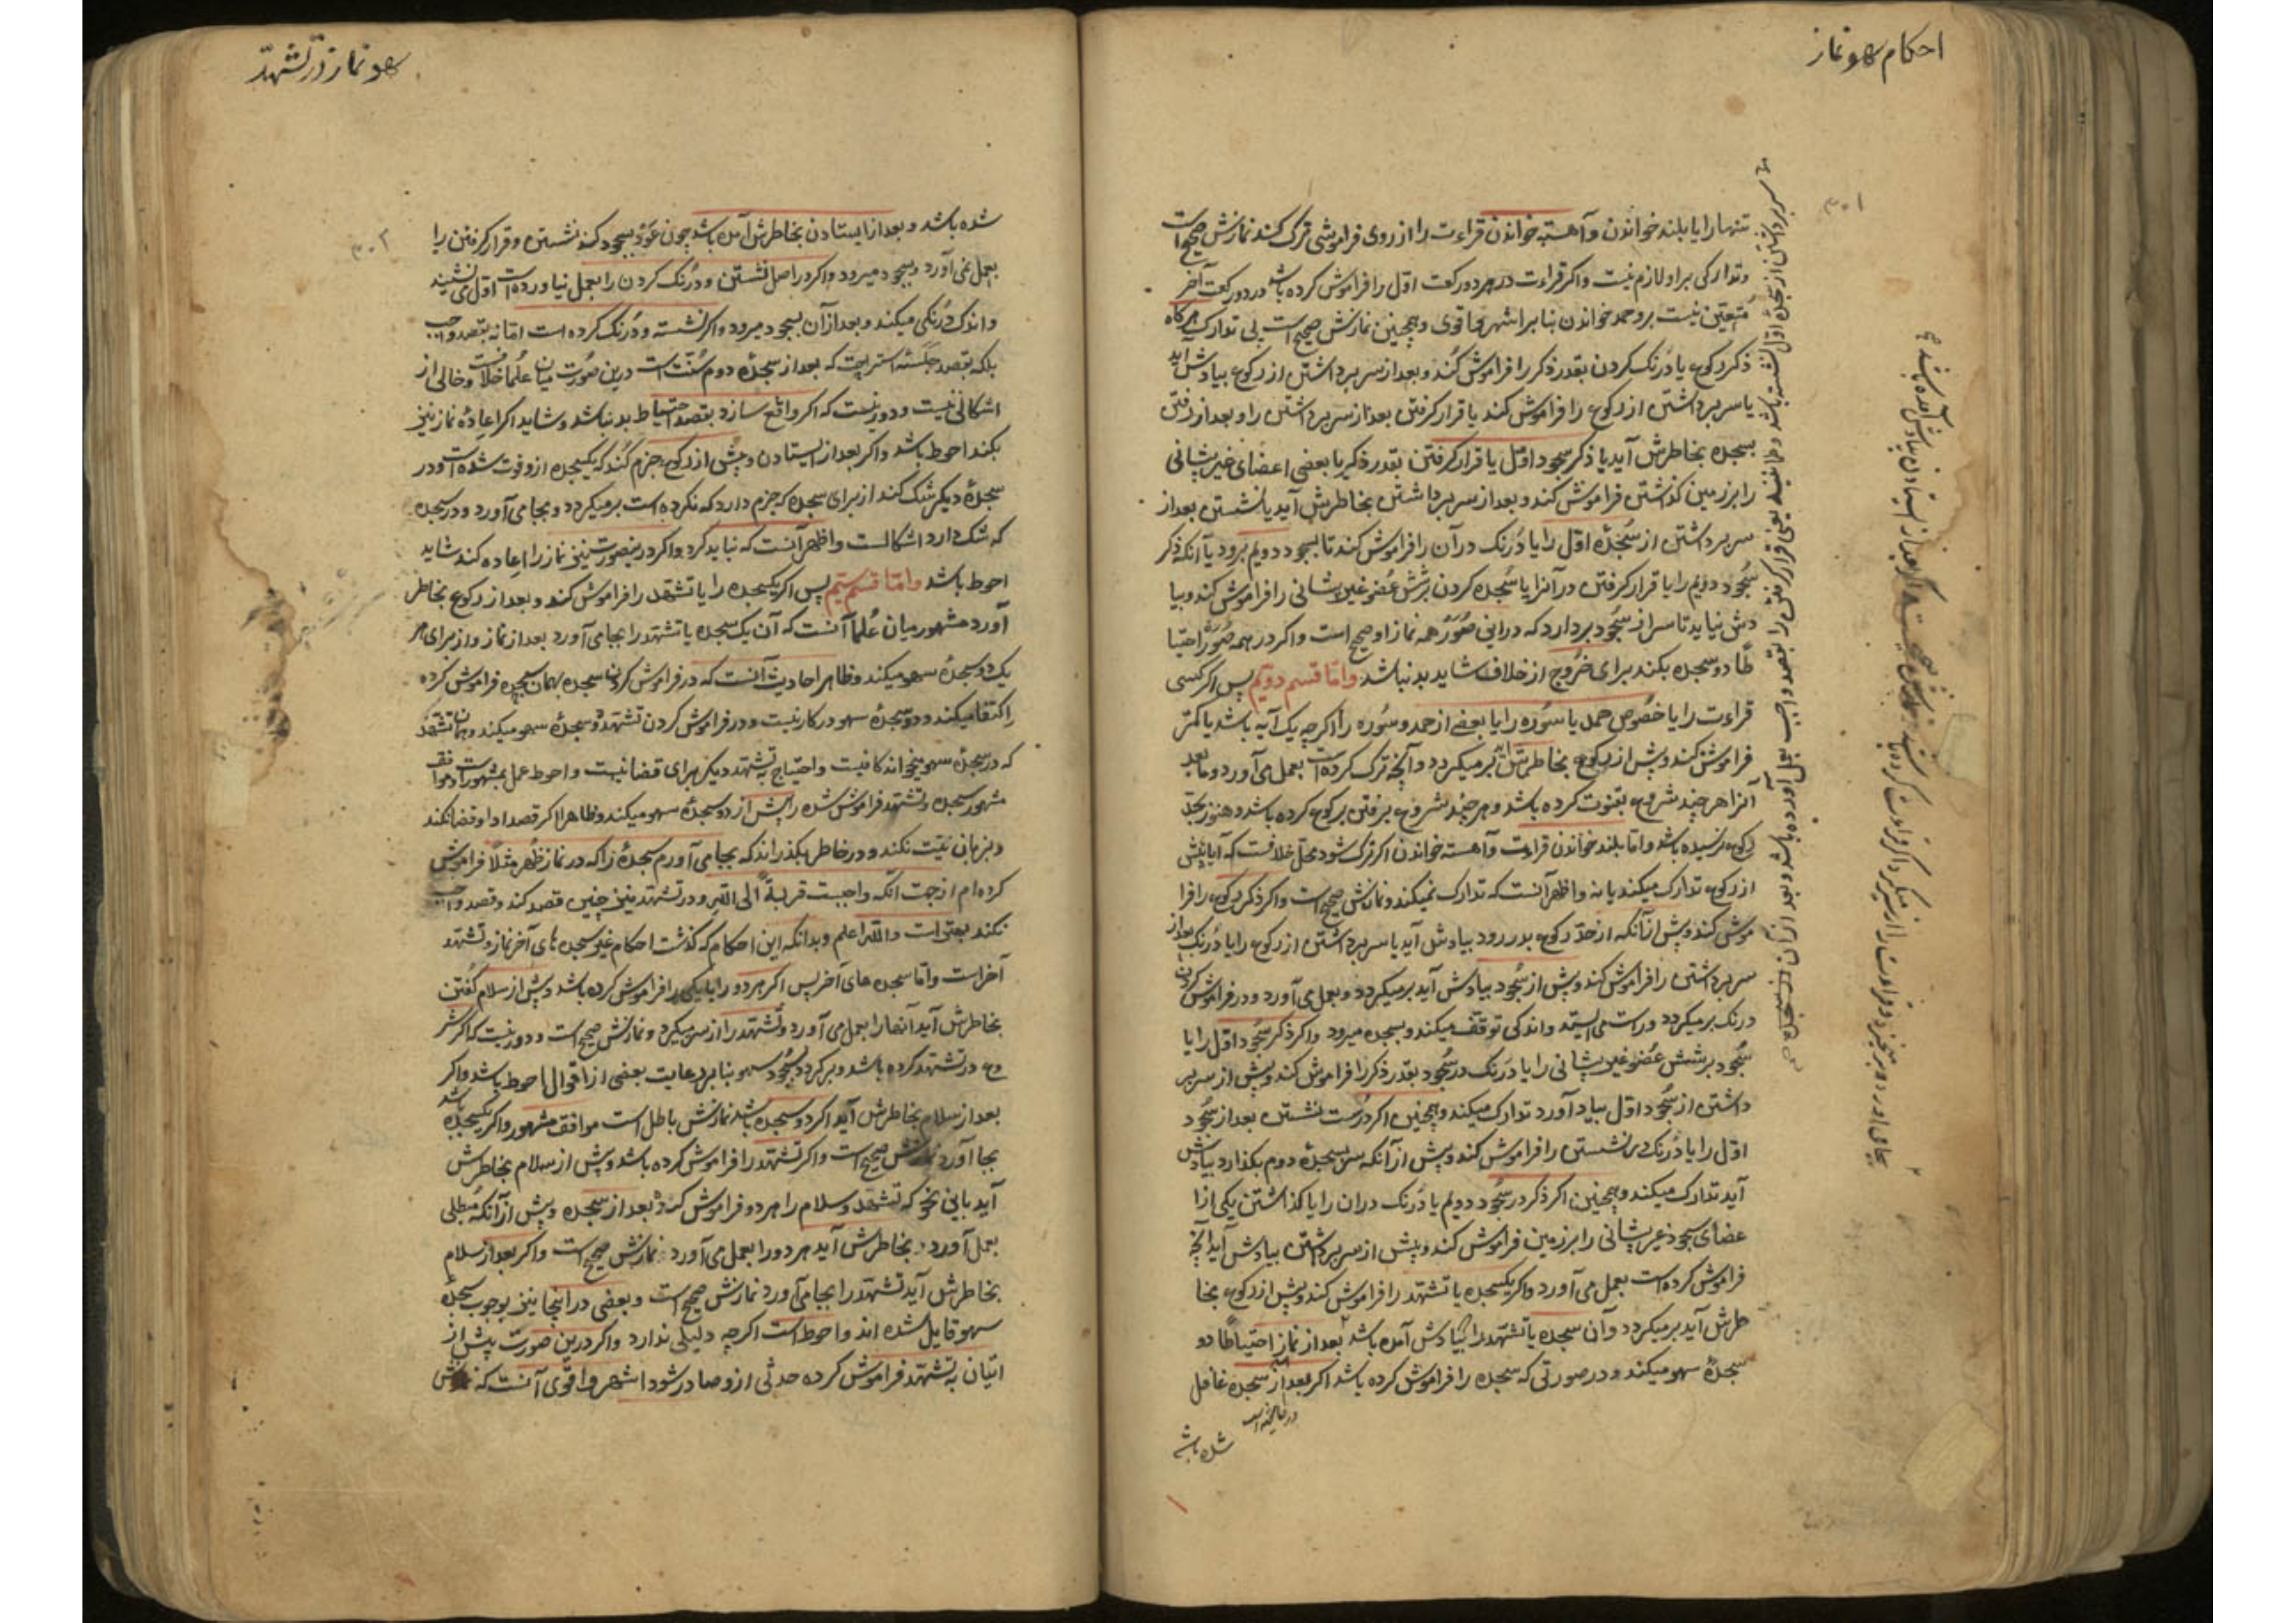 احکام سهو نماز
۳۰۱
تنها را یا بلند خواندن و آهسته خواندن قراءت را از روی فراموشی ترک کند نمازش صحیح است
و تدارکی بر او لازم نیست و اکر قراءت در هر دو رکعت اول را فراموش کرده باشد در دو رکعت آخر
متعین نیست بر او حمد خواندن بنابر اشهر و اقوی و همچنین نمازش صحیح است بی تدارک هرکاه
ذکر رکوع یا درنک کردن بقدر ذکر را فراموش کند و بعد از سر برداشتن از رکوع بیادش آید
یا سر برداشتن از رکوع را فراموش کند یا قرار کرفتن بعد از سر برداشتن را و بعد از رفتن
بسجده بخاطرش آید یا ذکر سجود اول یا قرار کرفتن بقدر ذکر یا بعضی اعضای غیر پیشانی
را بر زمین کذاشتن فراموش کند و بعد از سر برداشتن بخاطرش آید یا نشستن بعد از
سر برداشتن از سجدهٔ اول را یا درنک در آن را فراموش کند تا بسجود دویم برود یا آنکه ذکر
سجود دویم را یا قرار کرفتن در آنرا یا سجده کردن بر شش عضو غیر پیشانی را فراموش کند و بیا
دش نیاید تا سر از سجود بردارد که در این صور همه نماز او صحیح است و اکر در همه صور احتیا
طاً دو سجده بکند برای خروج از خلاف شاید بد نباشد و امّا قسم دویم پس اکر کسی
قراءت را یا خصوص حمد یا سوره را یا بعضی از حمد و سوره را اکرچه یک آیه باشد یا کمتر
فراموش کند و پیش از رکوع بخاطرش آید بر میکردد و آنچه ترک کرده است بعمل می آورد و ما بعد
آنرا هر چند شروع بقنوت کرده باشد و هر چند شروع برفتن برکوع کرده باشد و هنوز بحدّ
رکوع نرسیده باشد و امّا بلند خواندن قراءت و آهسته خواندن اکر ترک شود محلّ خلافست که آیا پیش
از رکوع تدارک میکند یا نه و اظهر آنست که تدارک نمیکند و نمازش صحیح است و اکر ذکر رکوع را فرا
موش کند و پیش از آنکه از حدّ رکوع بدر رود بیادش آید یا سر برداشتن از رکوع را یا درنک بعد از
سر برداشتن را فراموش کند و پیش از سجود بیادش آید بر میکردد و بعمل می آورد و در فراموش کردن
درنک بر میکردد و راست می ایستد و اندکی توقف میکند و بسجده میرود و اکر ذکر سجود اول را یا
سجود بر شش عضو غیر پیشانی را یا درنک در سجود بقدر ذکر را فراموش کند و پیش از سر بر
داشتن از سجود اول بیاد آورد تدارک میکند و همچنین اکر درست نشستن بعد از سجود
اول را یا درنک در نشستن را فراموش کند و پیش از آنکه سر بسجدهٔ دوم بکذارد بیادش
آید تدارک میکند و همچنین اکر ذکر در سجود دویم یا درنک در ان را یا کذاشتن یکی از ا
عضای سجود غیر پیشانی را بر زمین فراموش کند و پیش از سر برداشتن بیادش آید آنچه
فراموش کرده است بعمل می آورد و اکر یکسجده یا تشهد را فراموش کند و پیش از رکوع بخا
طرش آید بر میکردد و آن سجده یا تشهد را بیادش آمده باشد بعد از نماز احتیاطاً دو
سجدهٔ سهو میکند و در صورتی که سجده را فراموش کرده باشد اکر بعد از سجده غافل
شده باشد
سر برداشتن از سجدهٔ اول نشسته باشد و طمانینه یعنی قرار کرفتن را بقصد واجب بعمل آورده باشد و بعد از آن
سهو نماز در تشهد
۳۰۲
شده باشد و بعد از ایستادن بخاطرش آمده باشد چون عود بسجود کند نشستن و قرار کرفتن را
بعمل نمی آورد و بسجود میرود و اکر در اصل نشستن و درنک کردن را بعمل نیاورده است اول می نشیند
و اندک درنکی میکند و بعد از آن بسجود میرود و اکر نشسته و درنک کرده است امّا نه بقصد واجب
بلکه بقصد جلسهٔ استراحت که بعد از سجدهٔ دوم سنّت است درین صورت میان علما خلافست و خالی از
اشکالی نیست و دور نیست که اکر واقع سازد بقصد احتیاط بد نباشد و شاید اکر اعادهٔ نماز نیز
بکند احوط باشد و اکر بعد از ایستادن و پیش از رکوع جزم کند که یکسجده از و فوت شده است و در
سجدهٔ دیکر شک کند از برای سجده که جزم دارد که نکرده است بر میکردد و بجا می آورد و در سجده
که شک دارد اشکالست و اظهر آنست که نباید کرد و اکر درینصورت نیز نماز را اعاده کند شاید
احوط باشد و امّا قسم سیّم پس اکر یکسجده را یا تشهد را فراموش کند و بعد از رکوع بخاطر
آورد مشهور میان علما آنست که آن یک سجده یا تشهد را بجا می آورد بعد از نماز و از برای هر
یک دو سجدهٔ سهو میکند و ظاهر احادیث آنست که در فراموش کردن سجده بهمان سجده فراموش کرده
اکتفا میکند و دو سجدهٔ سهو در کار نیست و در فراموش کردن تشهد دو سجدهٔ سهو میکند و همان تشهد
که در سجدهٔ سهو میخواند کافیست و احتیاج به تشهد دیکر برای قضا نیست و احوط عمل بمشهور است و موافق
مشهور سجده و تشهد فراموش شده را پیش از دو سجدهٔ سهو میکند و ظاهرا اکر قصد ادا و قضا نکند
و بزبان نیّت نکند و در خاطر بکذراند که بجا می آورم سجدهٔ را که در نماز ظهر مثلاً فراموش
کرده ام از جهت آنکه واجبست قربةً الی الله و در تشهد نیز چنین قصد کند و قصد واجب
نکند بهتر است و الله اعلم و بدانکه این احکام که کذشت احکام غیر سجده های آخر نماز و تشهد
آخر است و امّا سجده های آخر پس اکر هر دو را یا یکی را فراموش کرده باشد و پیش از سلام کفتن
بخاطرش آید آنها را بعمل می آورد و تشهد را از سر میکیرد و نمازش صحیح است و دور نیست که اکر شر
وع در تشهد کرده باشد و بر کردد سجود سهو بنابر رعایت بعضی از اقوال احوط باشد و اکر
بعد از سلام بخاطرش آید اکر دو سجده باشد نمازش باطل است موافق مشهور و اکر یکسجده باشد
بجا آورد نمازش صحیح است و اکر تشهد را فراموش کرده باشد و پیش از سلام بخاطرش
آید باین نحو که تشهد و سلام را هر دو فراموش کرد و بعد از سجده و پیش از آنکه مبطلی
بعمل آورد بخاطرش آید هر دو را بعمل می آورد نمازش صحیح است و اکر بعد از سلام
بخاطرش آید تشهد را بجا می آورد نمازش صحیح است و بعضی در اینجا نیز بوجوب سجدهٔ
سهو قایل شده اند و احوط است اکرچه دلیلی ندارد و اکر درین صورت پیش از
اتیان به تشهد فراموش کرده حدثی از و صادر شود اشهر و اقوی آنست که نمازش